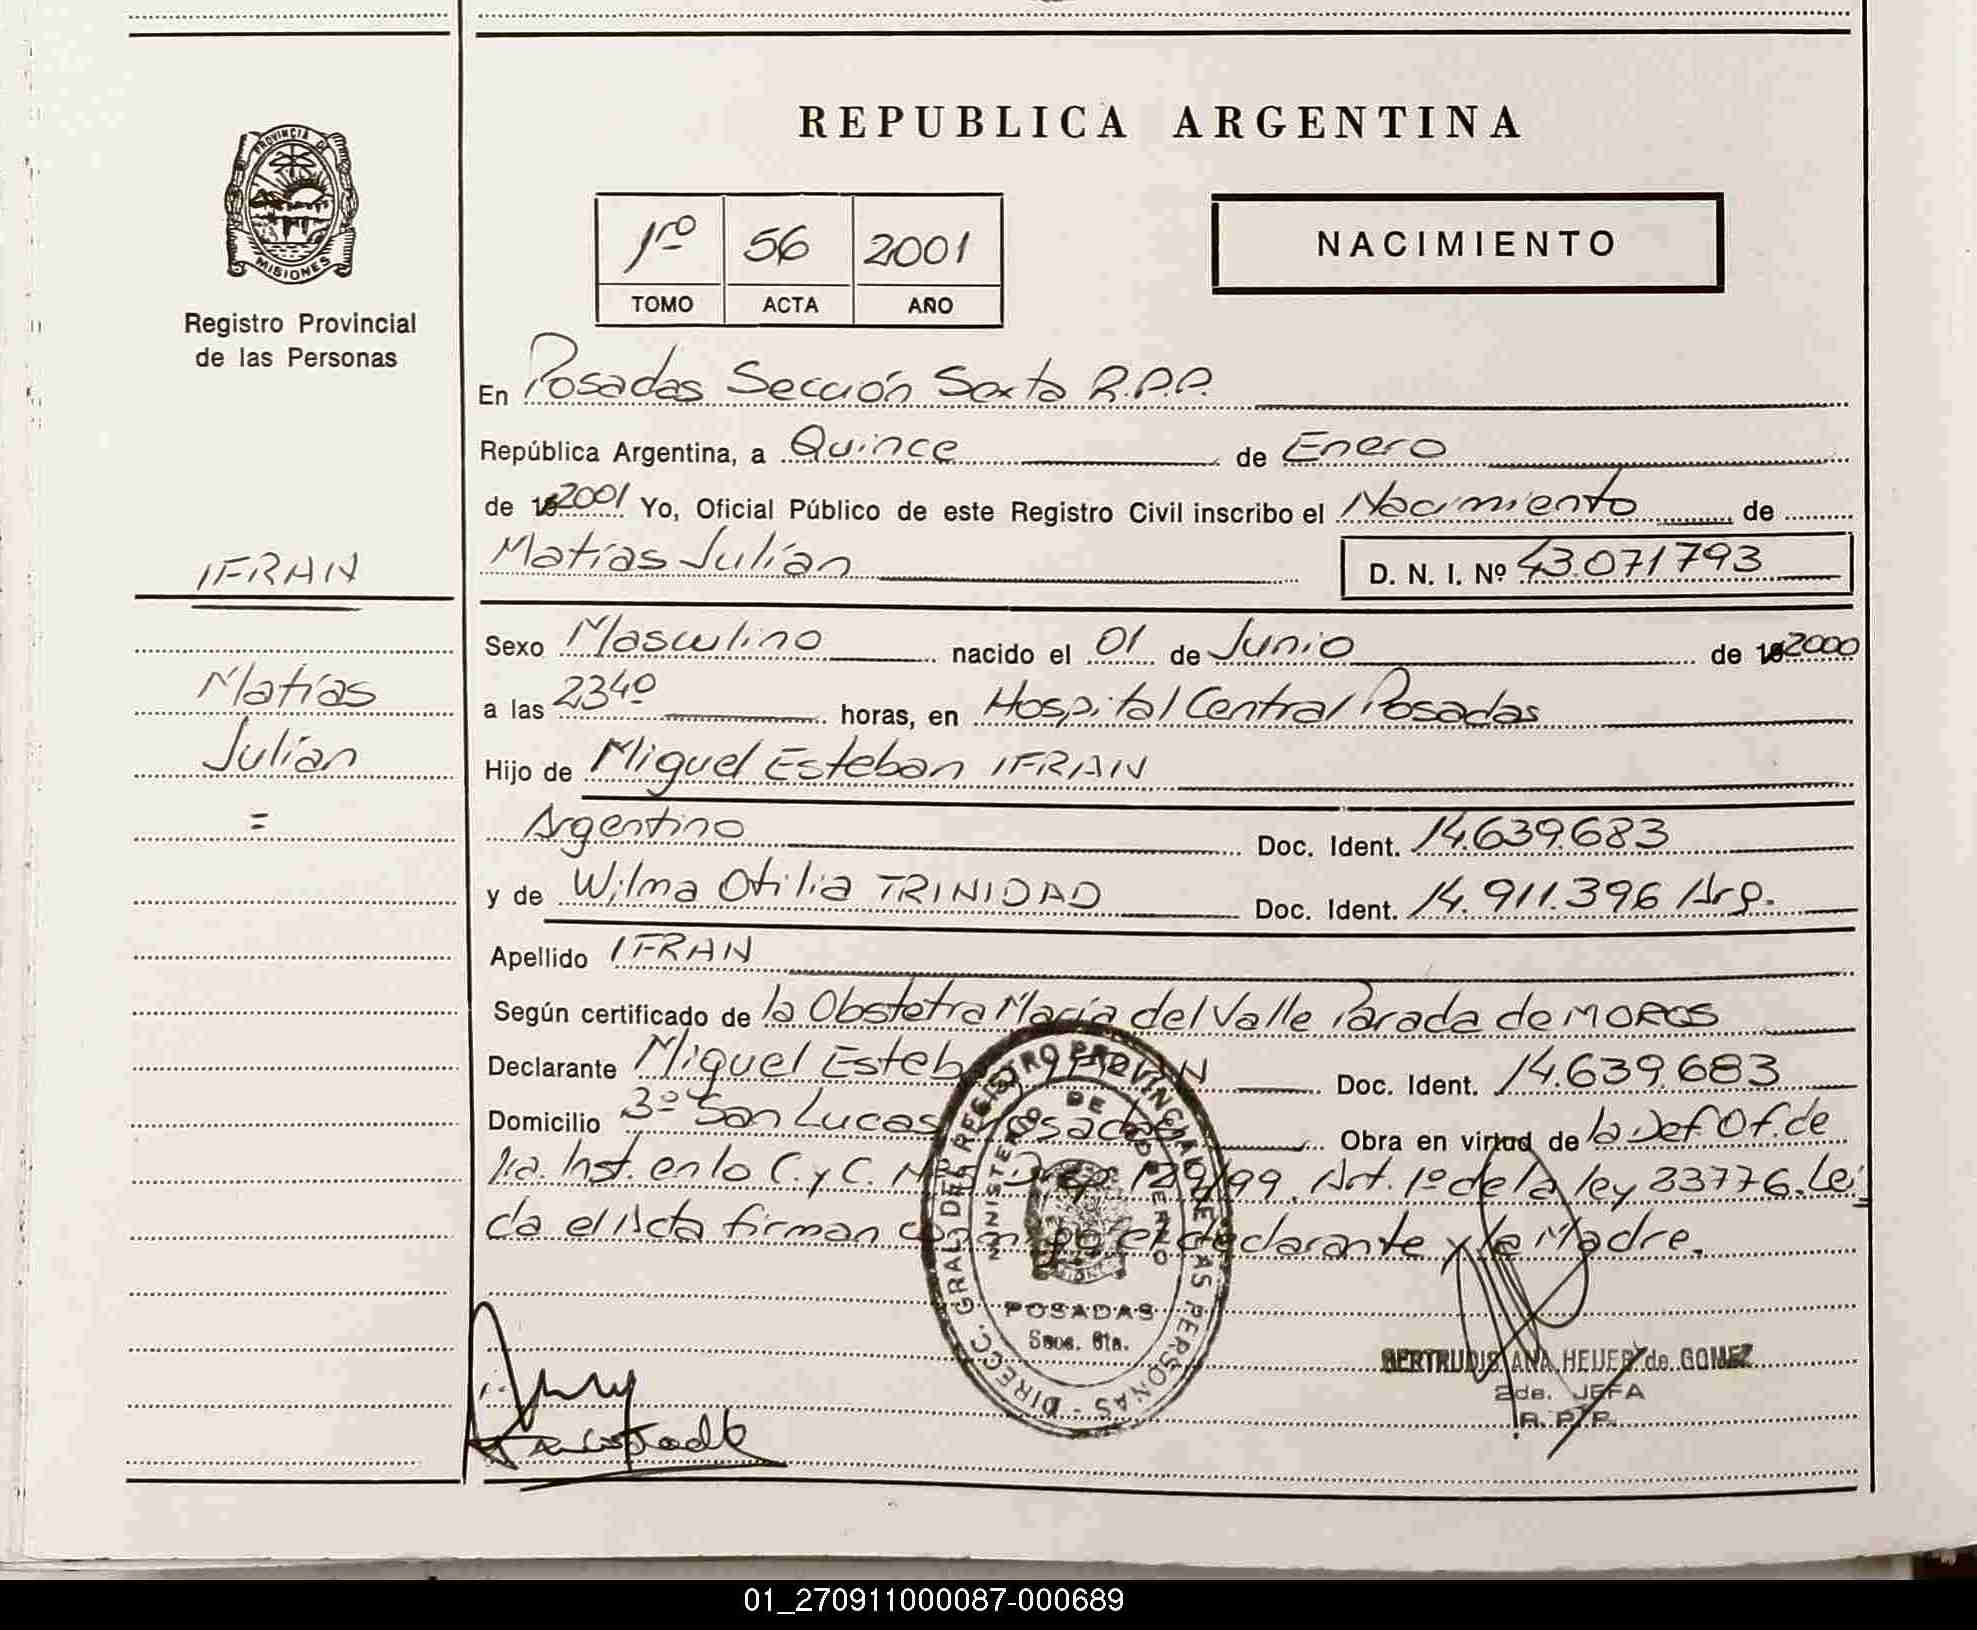 REPUBLICA ARGENTINA
PROVINCIA DE
MISIONES
Registro Provincial
de las Personas
1ro 56 2001
TOMO ACTA AÑO
NACIMIENTO
En Posadas Sección Sexta R.P.P.
República Argentina, a Quince de Enero
de 2001 Yo, Oficial Público de este Registro Civil inscribo el Nacimiento de
IFRAN
Matías Julián D. N. I. Nº 43.071793
Sexo Masculino nacido el 01 de Junio de 2000
Matías
a las 2340 horas, en Hospital Central Posadas
Julián
Hijo de Miguel Esteban IFRAN
=
Argentino Doc. Ident. 14.639.683
y de Wilma Otilia TRINIDAD Doc. Ident. 14.911.396 Arg.
Apellido IFRAN
Según certificado de la Obstetra María del Valle Parada de MOROS
Declarante Miguel Esteban IFRAN Doc. Ident. 14.639.683
Domicilio 3º San Lucas Posadas Obra en virtud de la Def. Of. de
1ra. Inst. en lo C. y C. Nº 129/99. Art. 1º de la ley 23776. Leí
da el Acta firman conmigo el declarante y la Madre.
DIRECC. GRAL. DEL REGISTRO PROVINCIAL DE LAS PERSONAS
MINISTERIO DE GOBIERNO
POSADAS
Secc. 6ta.
GERTRUDIS ANA HEUER de GOMEZ
2da. JEFA
R. P. P.
01_270911000087-000689